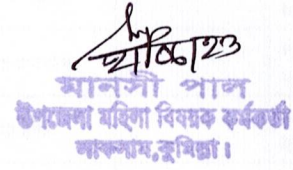 মানসী পাল
উপজেলা মহিলা বিষয়ক কর্মকর্তা
লাকসাম,কুমিল্লা।